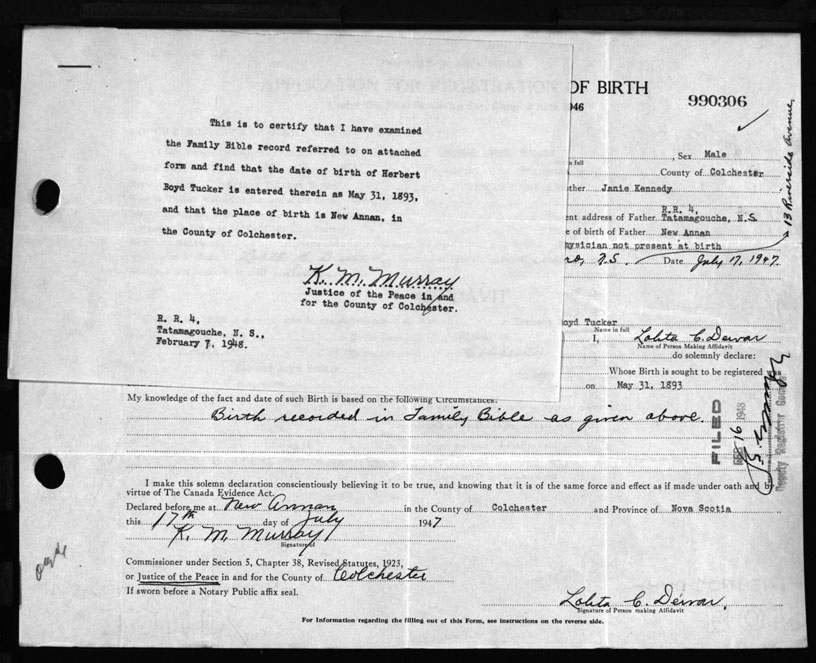 This is to certify that I have examined
the Family Bible record referred to on attached
form and find that the date of birth of Herbert
Boyd Tucker is entered therein as May 31, 1893,
and that the place of birth is New Annan, in
the County of Colchester.
K. M. Murray
Justice of the Peace in and
for the County of Colchester.
R. R. 4,
Tatamagouche, N. S.,
February 7, 1948.
OF BIRTH
990306
946
Sex Male
n full
County of Colchester
other Janie Kennedy
R.R. 4,
ent address of Father Tatamagouche, N.S
e of birth of Father New Annan
hysician not present at birth
N.S. Date July 17, 1947.
13 Riverside Avenue,
oyd Tucker
Name in full
I, Lolita C. Dewar
Name of Person Making Affidavit
do solemnly declare:
Whose Birth is sought to be registered
on May 31, 1893
My knowledge of the fact and date of such Birth is based on the following Circumstances:
Birth recorded in Family Bible as given above.
FILED
16 1948
Deputy Registrar General
I make this solemn declaration conscientiously believing it to be true, and knowing that it is of the same force and effect as if made under oath and by
virtue of The Canada Evidence Act.
Declared before me at New Annan in the County of Colchester and Province of Nova Scotia
this 17th day of July 1947
K. M. Murray
Signature of
Commissioner under Section 5, Chapter 38, Revised Statutes, 1923,
or Justice of the Peace in and for the County of Colchester
If sworn before a Notary Public affix seal.
Lolita C. Dewar.
Signature of Person making Affidavit
For Information regarding the filling out of this Form, see instructions on the reverse side.